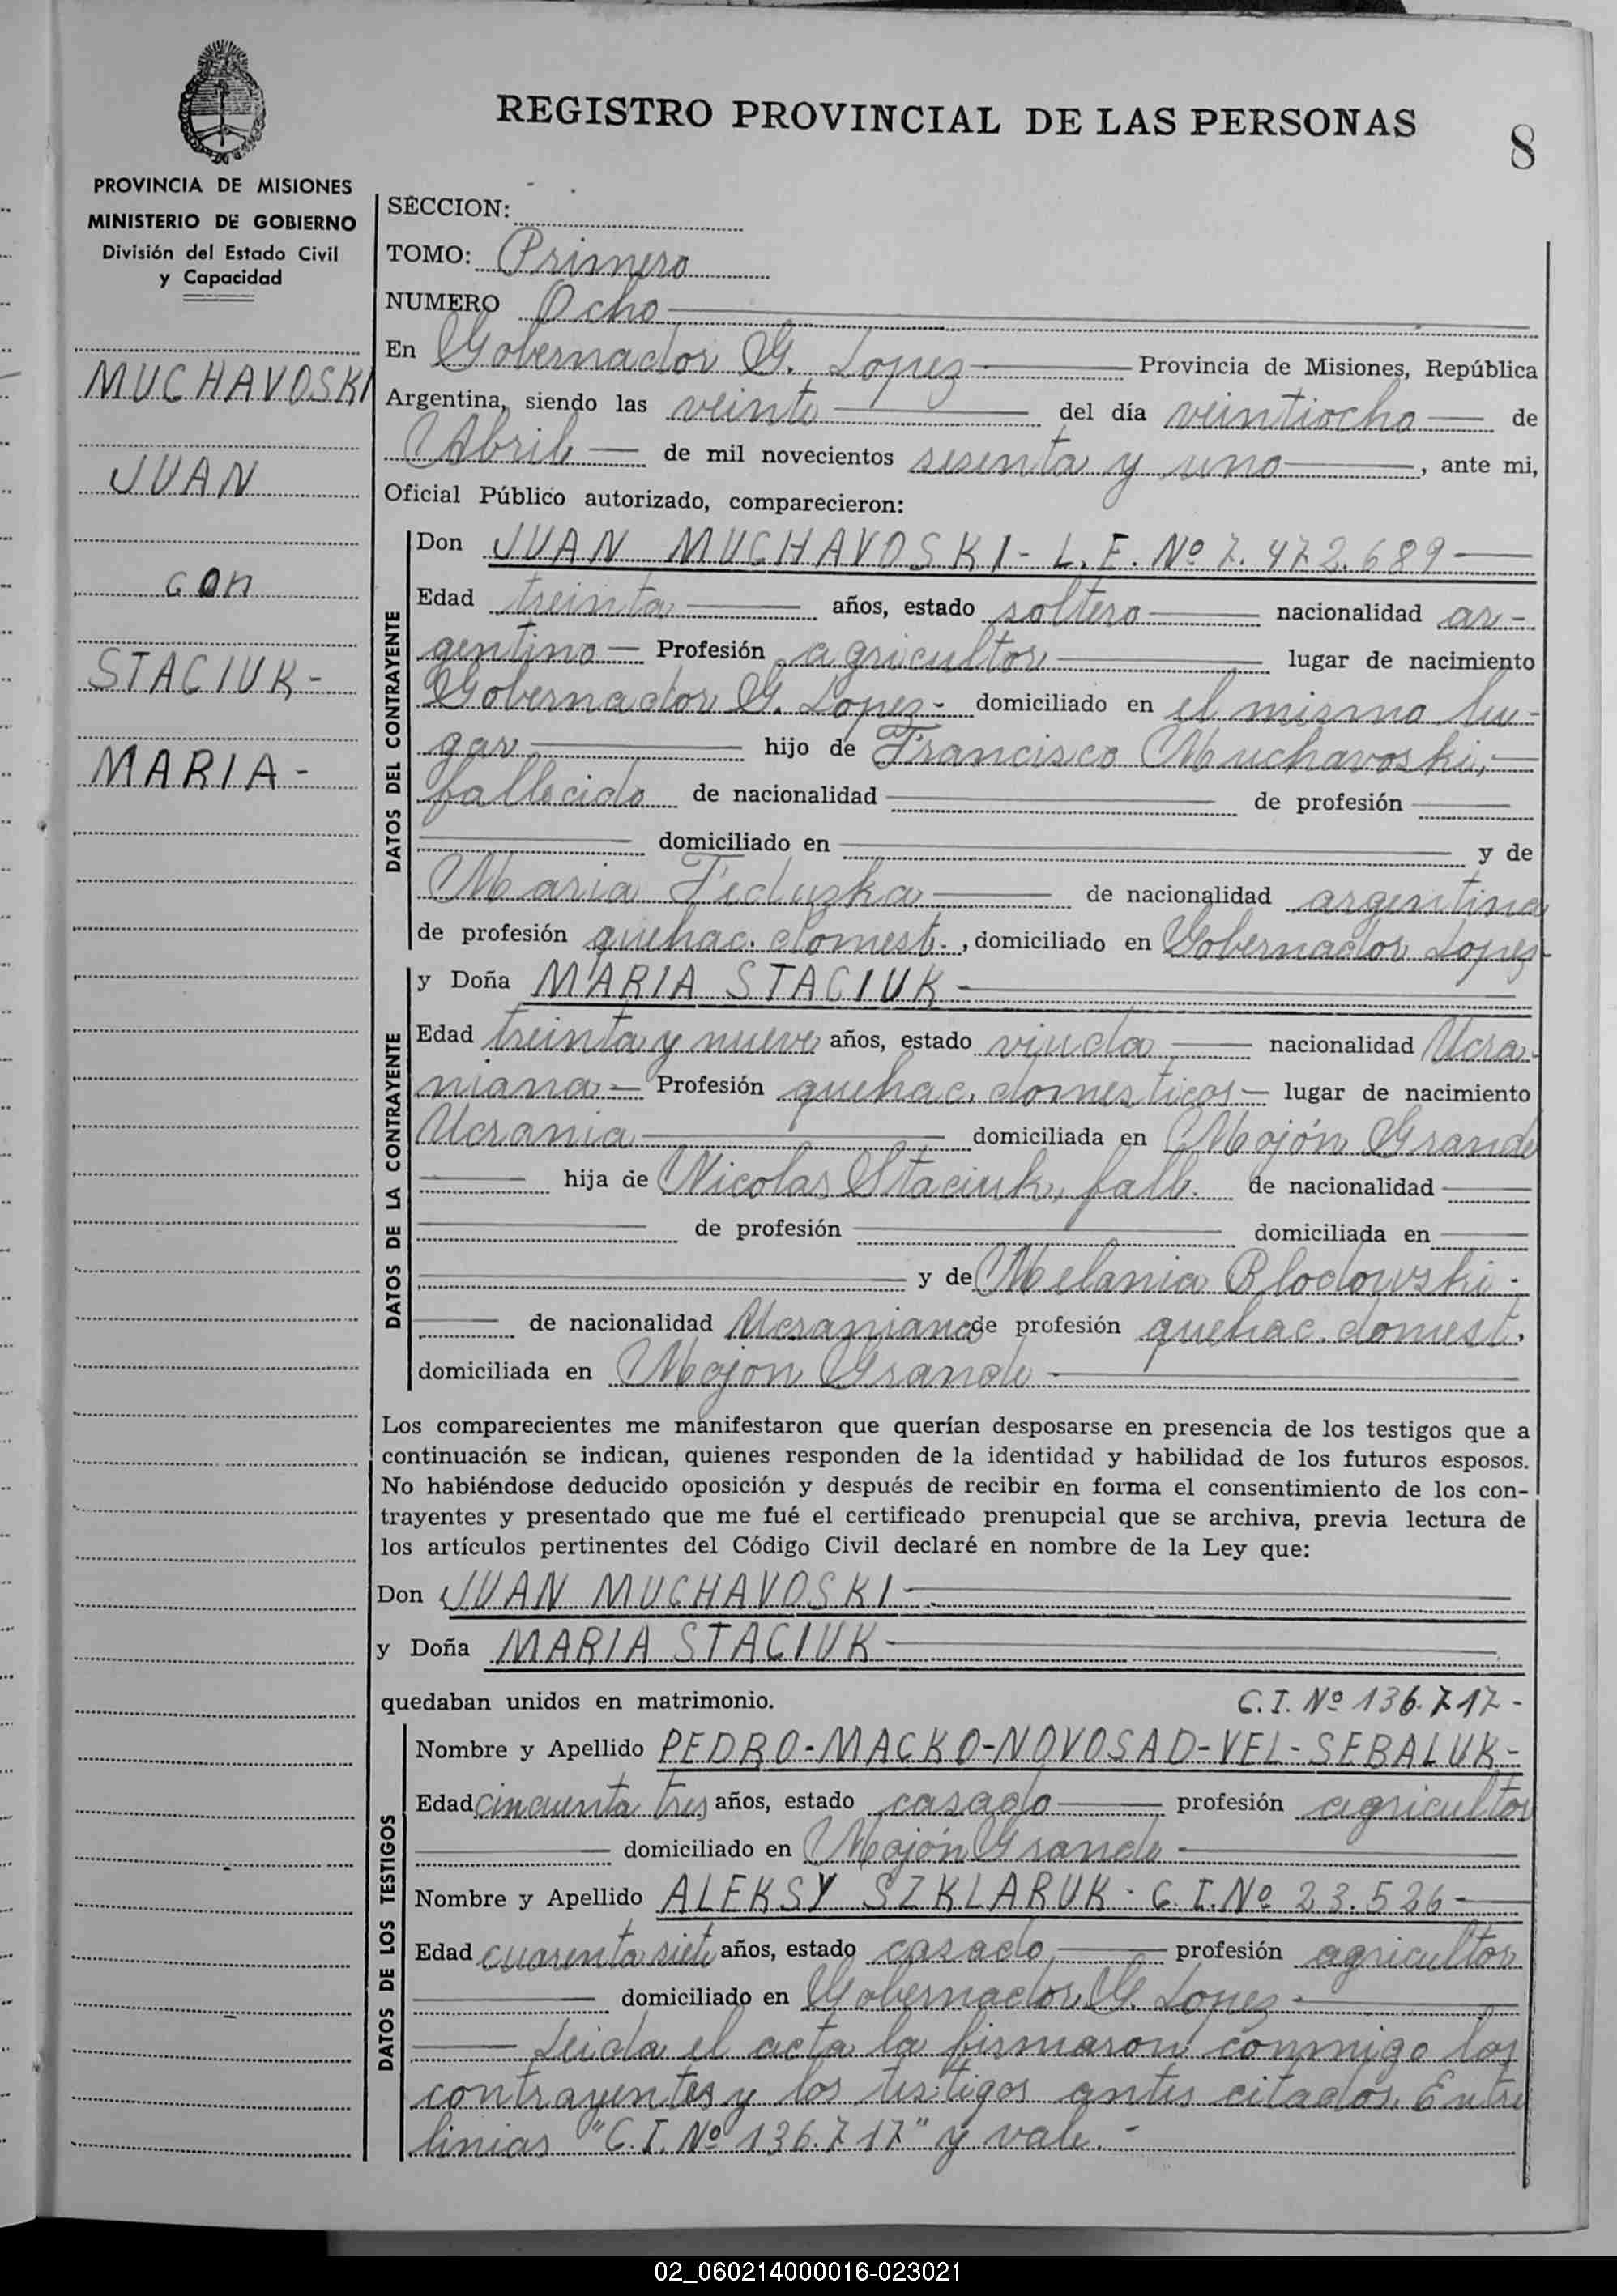 REGISTRO PROVINCIAL DE LAS PERSONAS
8
PROVINCIA DE MISIONES
MINISTERIO DE GOBIERNO
División del Estado Civil
y Capacidad
MUCHAVOSKI
JUAN
con
STACIUK-
MARIA-
SECCION:
TOMO: Primero
NUMERO Ocho
En Gobernador G. Lopez Provincia de Misiones, República
Argentina, siendo las veinte del día veintiocho de
Abril de mil novecientos sesenta y uno, ante mi,
Oficial Público autorizado, comparecieron:
DATOS DEL CONTRAYENTE
Don JUAN MUCHAVOSKI - L. E. Nº 7.472.689
Edad treinta años, estado soltero nacionalidad ar-
gentino Profesión agricultor lugar de nacimiento
Gobernador G. Lopez- domiciliado en el mismo lu-
gar hijo de Francisco Muchavoski,
fallecido de nacionalidad de profesión
domiciliado en y de
Maria Feduzka de nacionalidad argentina
de profesión quehac. domest., domiciliado en Gobernador Lopez-
DATOS DE LA CONTRAYENTE
y Doña MARIA STACIUK-
Edad treinta y nueve años, estado viuda nacionalidad Ucra-
niana Profesión quehac. domesticos lugar de nacimiento
Ucrania domiciliada en Mojón Grande
hija de Nicolas Staciuk, fall. de nacionalidad
de profesión domiciliada en
y de Melania Blodowski-
de nacionalidad Ucraniana de profesión quehac. domest.
domiciliada en Mojon Grande
Los comparecientes me manifestaron que querían desposarse en presencia de los testigos que a
continuación se indican, quienes responden de la identidad y habilidad de los futuros esposos.
No habiéndose deducido oposición y después de recibir en forma el consentimiento de los con-
trayentes y presentado que me fué el certificado prenupcial que se archiva, previa lectura de
los artículos pertinentes del Código Civil declaré en nombre de la Ley que:
Don JUAN MUCHAVOSKI
y Doña MARIA STACIUK
quedaban unidos en matrimonio. C. I. Nº 136.717-
DATOS DE LOS TESTIGOS
Nombre y Apellido PEDRO-MACKO-NOVOSAD-VEL-SEBALUK-
Edad cincuenta tres años, estado casado profesión agricultor
domiciliado en Mojón Grande
Nombre y Apellido ALEKSY SZKLARUK - C. I. Nº 23.526
Edad cuarenta siete años, estado casado profesión agricultor
domiciliado en Gobernador G. Lopez-
Leida el acta la firmaron conmigo los
contrayentes y los testigos antes citados. Entre
linias "C. I. Nº 136.717" y vale.-
02_060214000016-023021